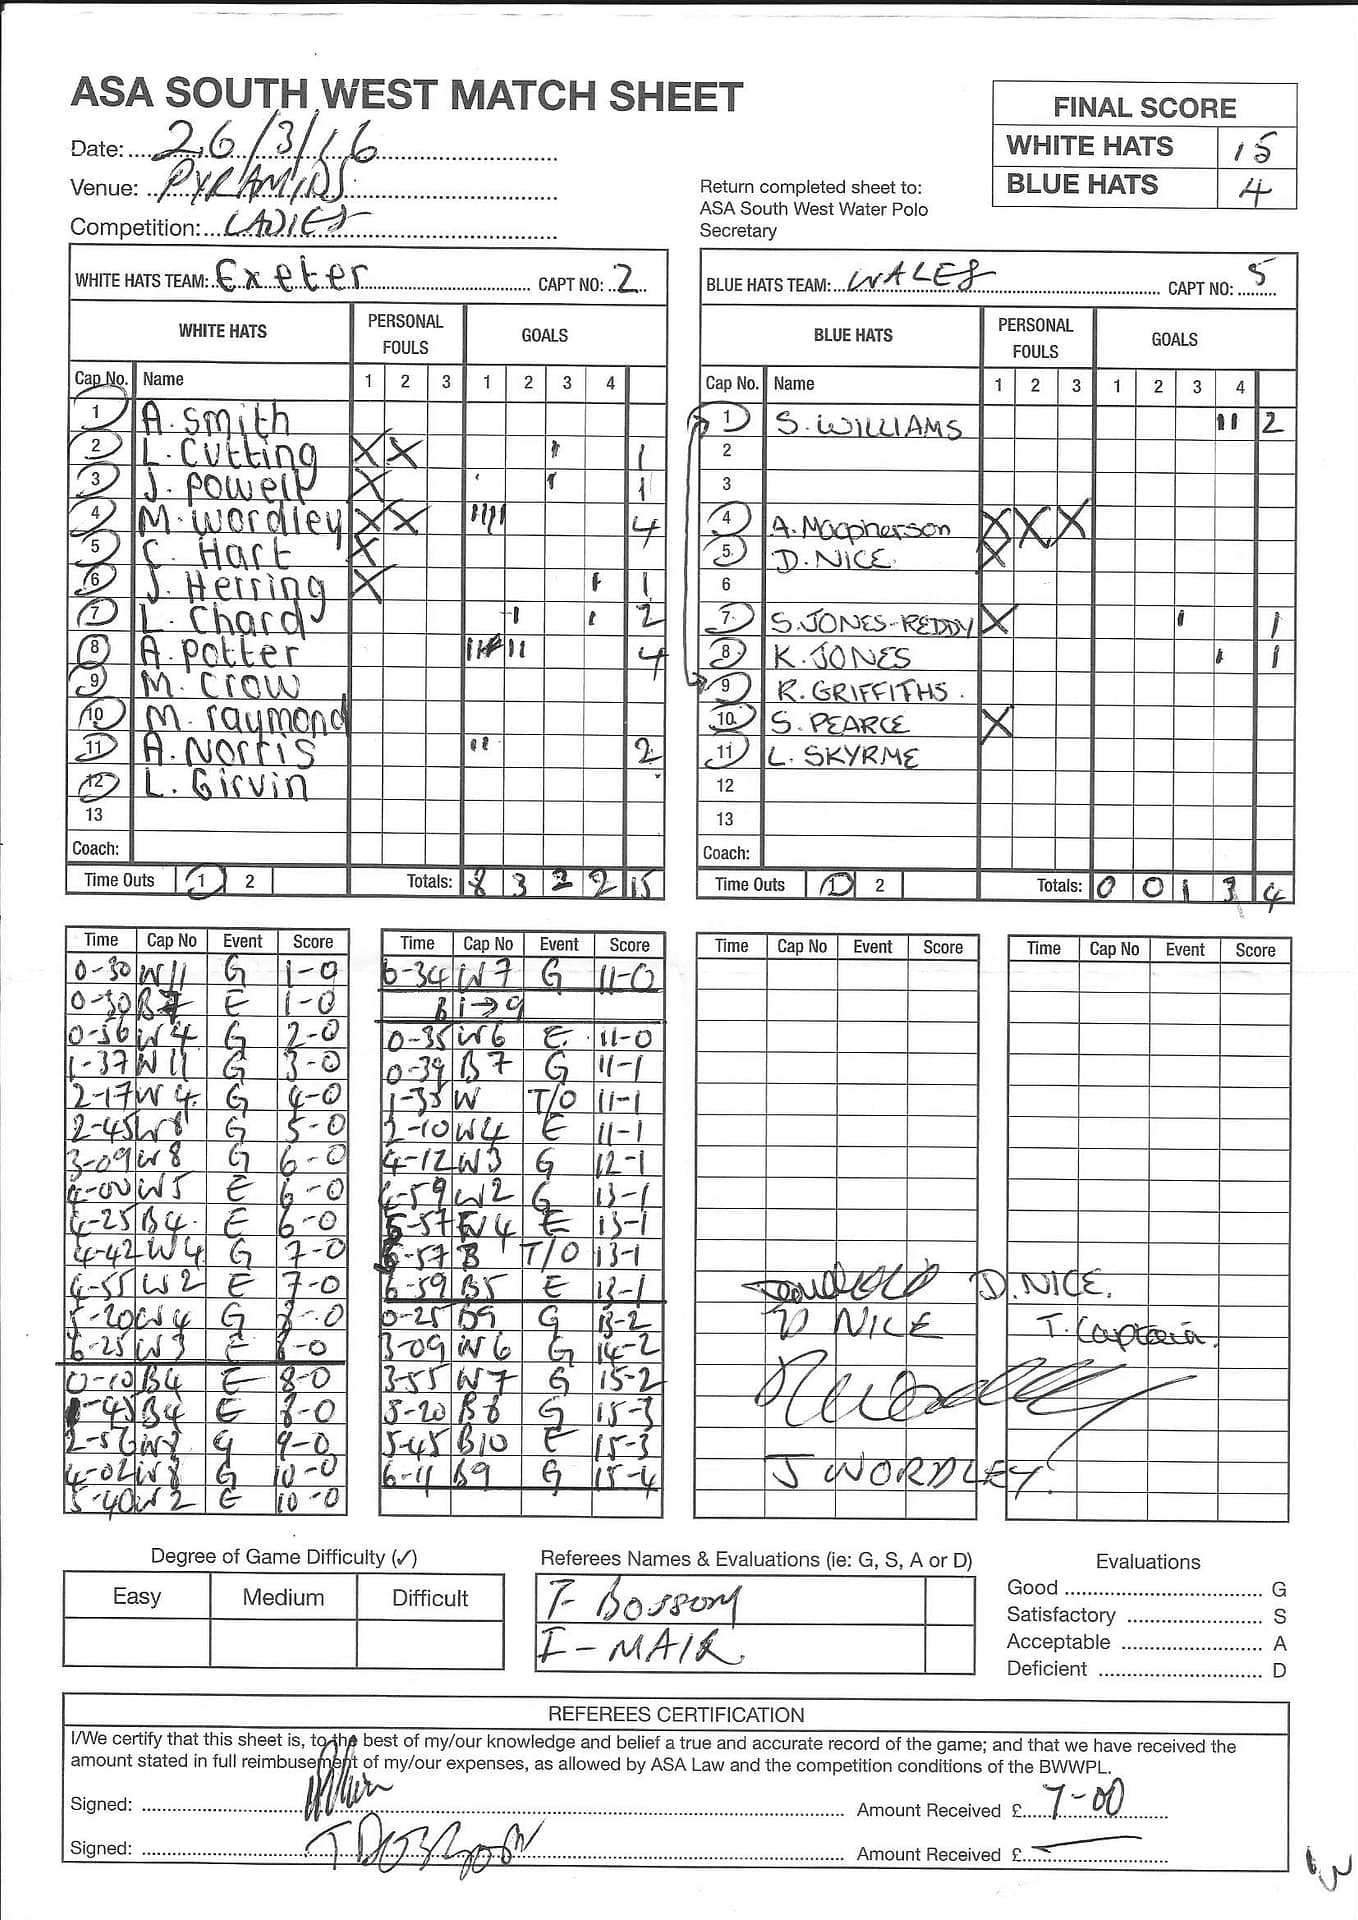 ASA SOUTH WEST MATCH SHEET
Date: 26/3/16
Venue: PYRAMIDS
Competition: LADIES
Return completed sheet to:
ASA South West Water Polo
Secretary
FINAL SCORE
WHITE HATS 15
BLUE HATS 4
WHITE HATS TEAM: Exeter CAPT NO: 2
WHITE HATS PERSONAL FOULS GOALS
Cap No. Name 1 2 3 1 2 3 4
1 A. Smith
2 L. Cutting X X ı 1
3 J. Powell X ı 1
4 M. Wordley X X IIII 4
5 C. Hart X
6 J. Herring X ı 1
7 L. Chard ı ı 2
8 A. Potter II II 4
9 M. Crow
10 M. raymond
11 A. Norris II 2
12 L. Girvin
13
Coach:
Time Outs 1 2 Totals: 8 3 2 2 15
BLUE HATS TEAM: WALES CAPT NO: 5
BLUE HATS PERSONAL FOULS GOALS
Cap No. Name 1 2 3 1 2 3 4
1 S. WILLIAMS II 2
2
3
4 A. Macpherson X X X
5 D. NICE X
6
7 S. JONES-REDDY X ı 1
8 K. JONES ı 1
9 R. GRIFFITHS.
10 S. PEARCE X
11 L. SKYRME
12
13
Coach:
Time Outs 1 2 Totals: 0 0 1 3 4
Time Cap No Event Score
0-30 W11 G 1-0
0-30 B7 E 1-0
0-56 W4 G 2-0
1-37 W11 G 3-0
2-17 W4 G 4-0
2-45 W8 G 5-0
3-09 W8 G 6-0
4-00 W5 E 6-0
4-25 B4 E 6-0
4-42 W4 G 7-0
4-55 W2 E 7-0
5-20 W4 G 8-0
6-25 W3 E 8-0
0-10 B4 E 8-0
1-45 B4 E 8-0
2-56 W8 G 9-0
4-02 W8 G 10-0
5-40 W2 E 10-0
Time Cap No Event Score
6-34 W7 G 11-0
B 1→9
0-35 W6 E 11-0
0-39 B7 G 11-1
1-35 W T/O 11-1
2-10 W4 E 11-1
4-12 W3 G 12-1
4-59 W2 G 13-1
5-57 W4 E 13-1
6-57 B T/O 13-1
6-59 B5 E 13-1
0-25 B9 G 13-2
3-09 W6 G 14-2
3-55 W7 G 15-2
5-20 B8 G 15-3
5-45 B10 E 15-3
6-11 B9 G 15-4
Time Cap No Event Score
Time Cap No Event Score
D. NICE.
D NICE T. Captain.
J WORDLEY
Degree of Game Difficulty (✓)
Easy Medium Difficult
Referees Names & Evaluations (ie: G, S, A or D)
T- BOSSOM
I - MAIR
Evaluations
Good G
Satisfactory S
Acceptable A
Deficient D
REFEREES CERTIFICATION
I/We certify that this sheet is, to the best of my/our knowledge and belief a true and accurate record of the game; and that we have received the
amount stated in full reimbusement of my/our expenses, as allowed by ASA Law and the competition conditions of the BWWPL.
Signed: Amount Received £ 7-00
Signed: Amount Received £ —